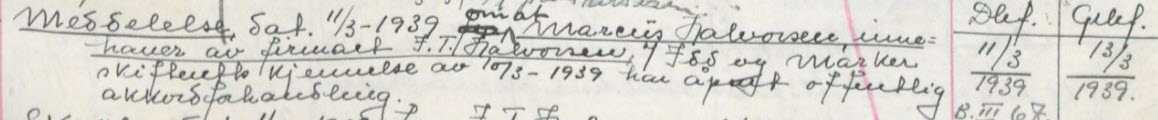 Meddelelse, dat. 11/3-1939 om at Marcus Halvorsen, inne=
haver av firmaet J.T. Halvorsen, i Idd og Marker
skifteretts kjennelse av 10/3-1939 har åpnet offentlig
akkordforhandling.
Dbf. Gebf.
11/3 1939 13/3 1939.
B. III 67.